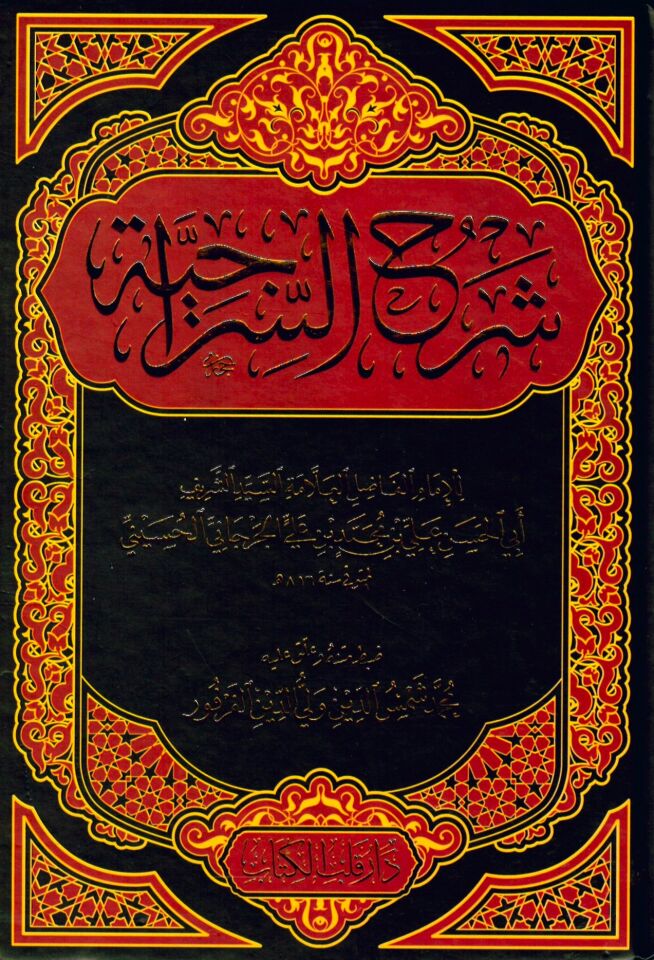 شَرْحُ السِّرَاجِيَّة
للإمام الفاضل العلامة السيد الشريف
أبي الحسن علي بن محمد بن علي الجرجاني الحسيني
المتوفى سنة ٨١٦هـ
ضبط متنه وعلق عليه
محمد شمس الدين ولي الدين الفرفور
دار قلب الكتاب